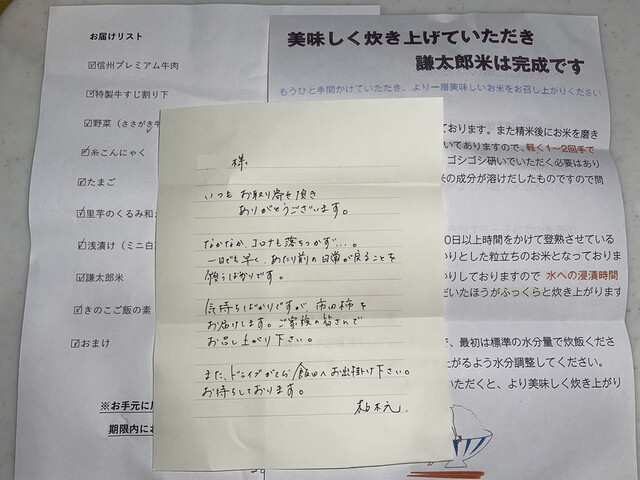 お届けリスト
☑信州プレミアム牛肉
☑特製牛すじ割り下
☑野菜（ささがき牛
☑糸こんにゃく
☑たまご
☑里芋のくるみ和え
☑浅漬け（ミニ白
☑謙太郎米
☑きのこご飯の素
☑おまけ
※お手元に届
期限内にお
美味しく炊き上げていただき
謙太郎米は完成です
もうひと手間かけていただき、より一層美味しいお米をお召し上がりください
ております。また精米後にお米を磨き
いてありますので、軽く1〜2回手で
ゴシゴシ研いでいただく必要はあり
米の成分が溶けだしたものですので問
0日以上時間をかけて登熟させている
かりとした粒立ちのお米となっておりま
かりしておりますので 水への浸漬時間
だいたほうがふっくらと炊き上がります
で、最初は標準の水分量で炊飯くださ
上がるよう水分調整してください。
いただくと、より美味しく炊き上がり
様
いつも お取り寄せ頂き
ありがとうございます。
なかなか、コロナも落ちつかず…。
一日でも早く、あたり前の日常が戻ることを
願うばかりです。
気持ちばかりですが 市田柿を
お届けします。ご家族の皆さんで
お召し上がり下さい。
また、ドライブがてら 飯田へお出掛け下さい。
お待ちしております。
柚木元